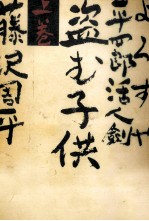 よろずや
平四郎活人剣
上巻
盗む子供
藤沢周平